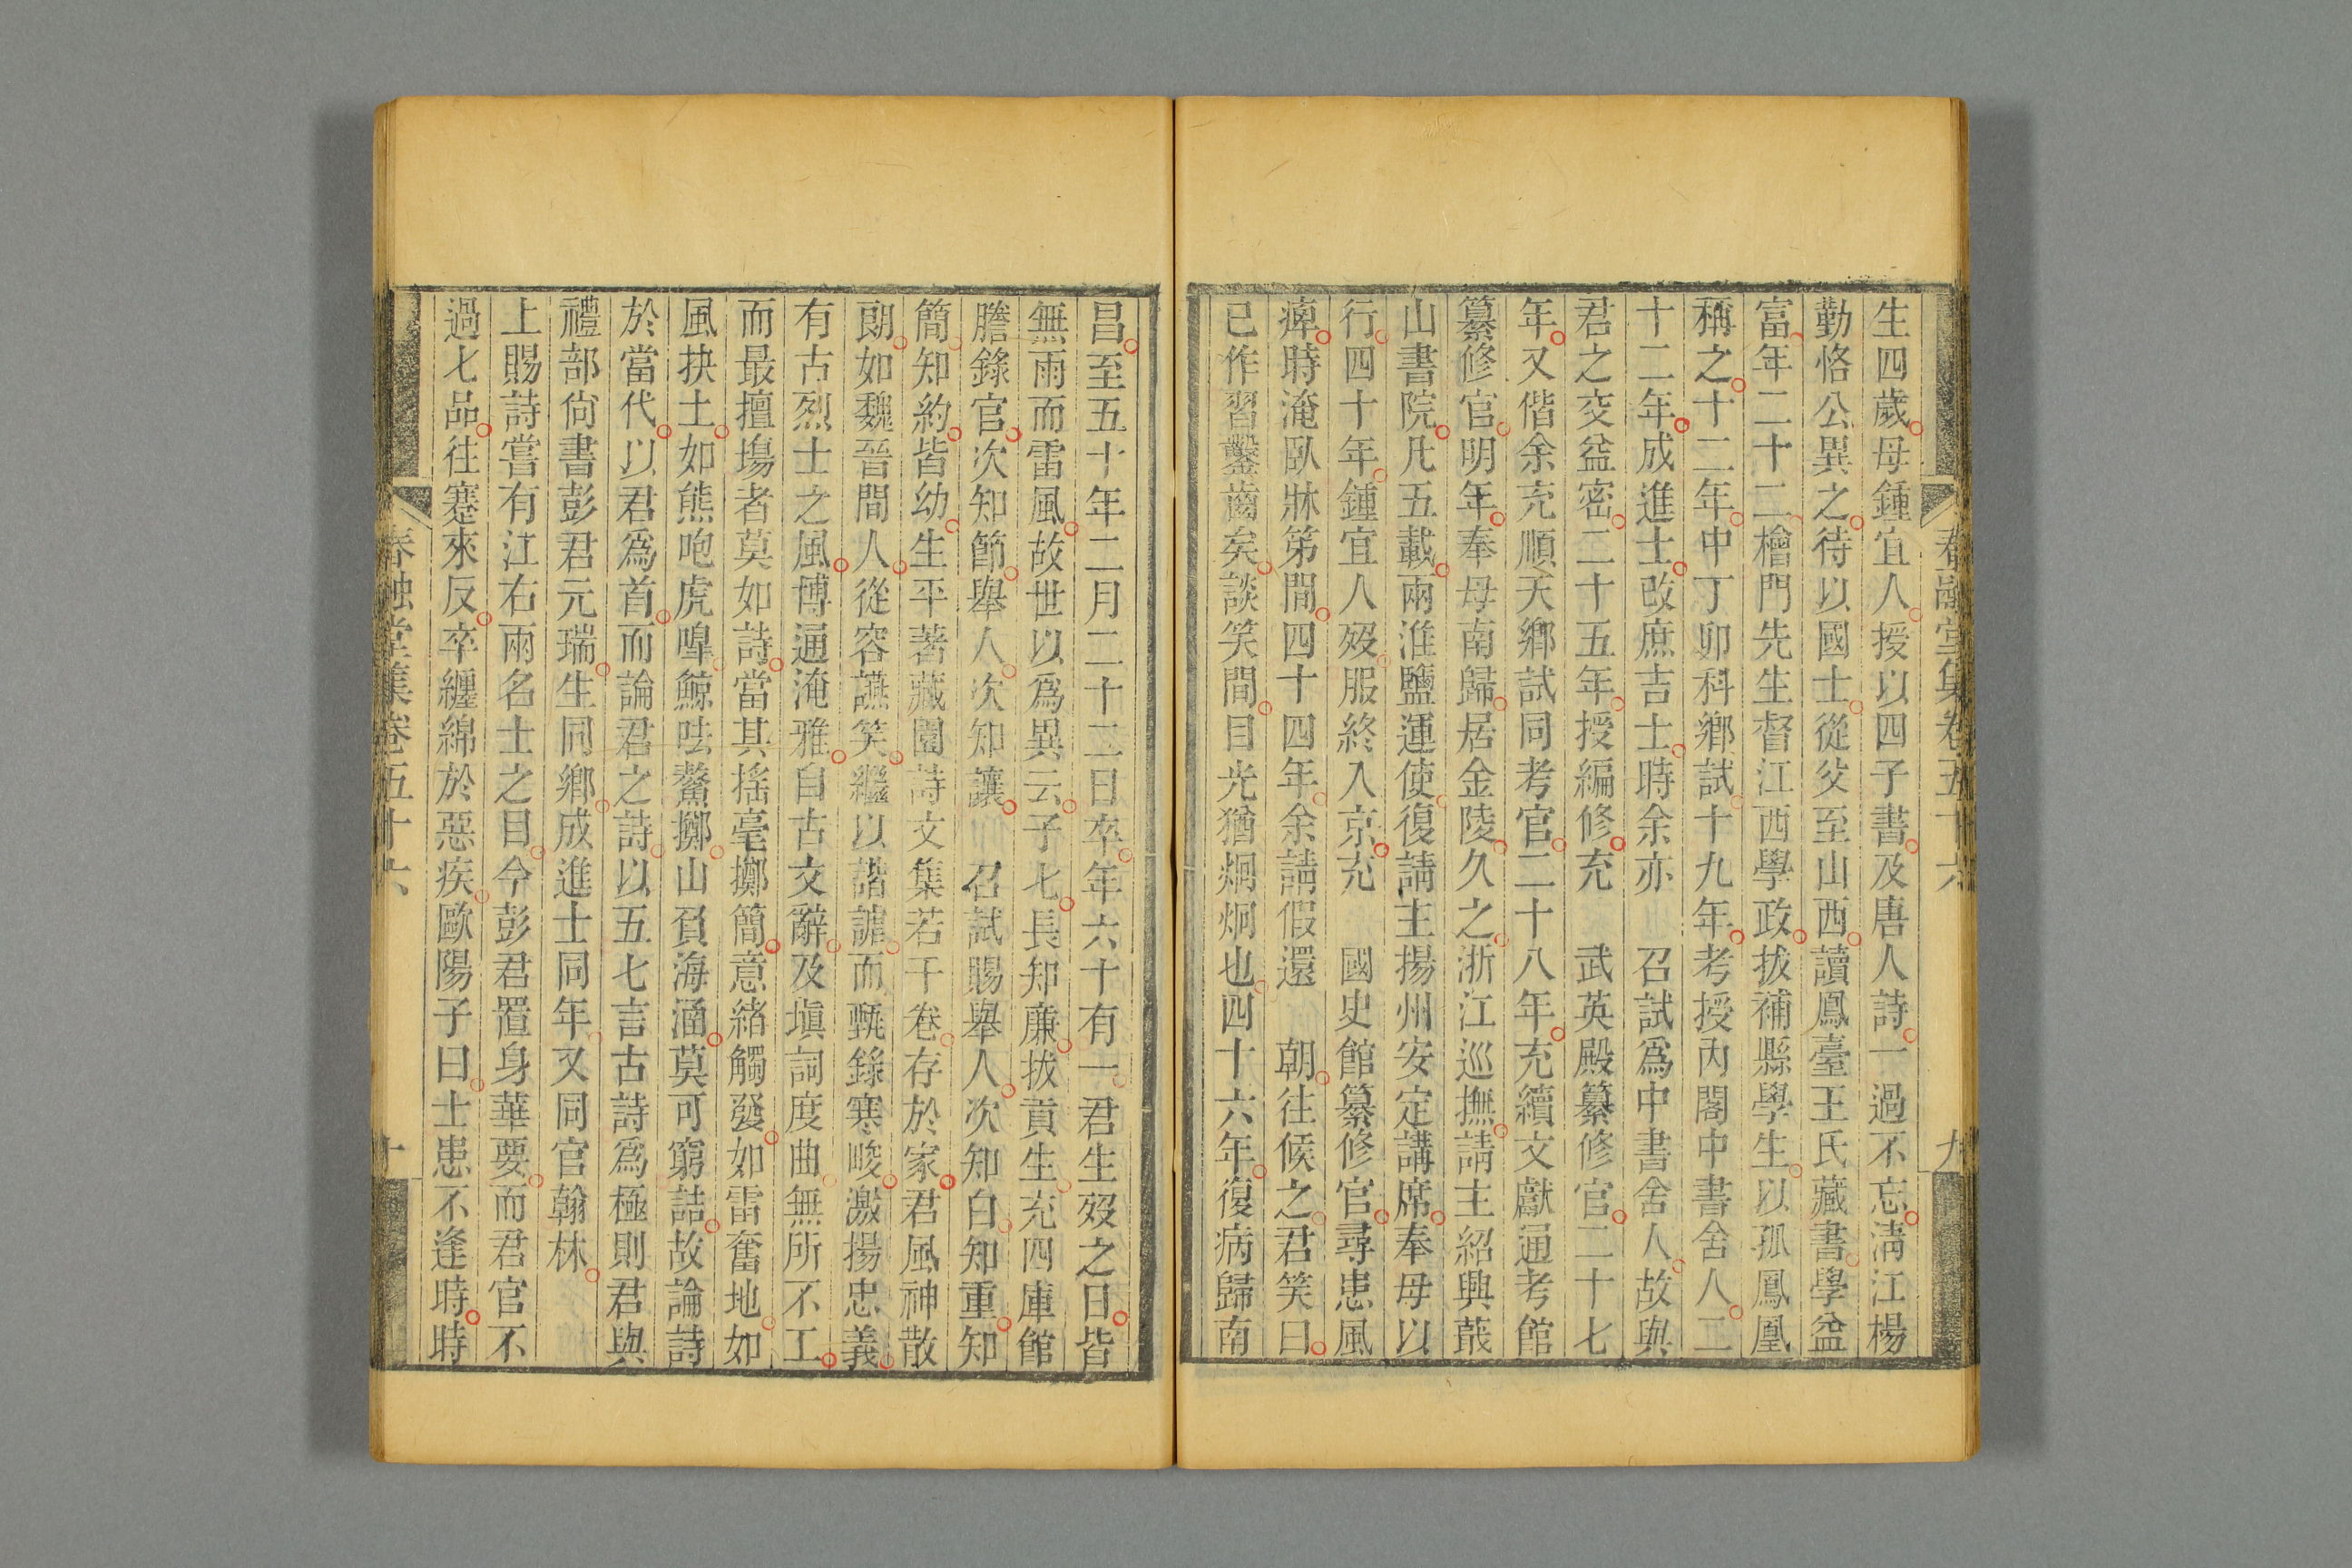 春融堂集卷五十六
九
生四歲母鍾宜人授以四子書及唐人詩一過不忘淸江楊
勤恪公異之待以國士從父至山西讀鳳臺王氏藏書學益
富年二十二檜門先生督江西學政拔補縣學生以孤鳳凰
稱之十二年中丁卯科鄉試十九年考授內閣中書舍人二
十二年成進士改庶吉士時余亦召試爲中書舍人故與
君之交益密二十五年授編修充武英殿纂修官二十七
年又偕余充順天鄉試同考官二十八年充續文獻通考館
纂修官明年奉母南歸居金陵久之浙江巡撫請主紹興蕺
山書院凡五載兩淮鹽運使復請主揚州安定講席奉母以
行四十年鍾宜人歿服終入京充國史館纂修官尋患風
痺時淹臥牀第間四十四年余請假還朝往候之君笑曰
已作習鑿齒矣談笑間目光猶炯炯也四十六年復病歸南
昌至五十年二月二十二日卒年六十有一君生歿之日皆
無雨而雷風故世以爲異云子七長知廉拔貢生充四庫館
謄錄官次知節舉人次知讓召試賜舉人次知白知重知
簡知約皆幼生平著藏園詩文集若干卷存於家君風神散
朗如魏晉間人從容讌笑繼以諧謔而甄錄寒畯激揚忠義
有古烈士之風博通淹雅自古文辭及塡詞度曲無所不工
而最擅塲者莫如詩當其搖毫擲簡意緒觸發如雷奮地如
風抉土如熊咆虎嘷鯨呿鰲擲山負海涵莫可窮詰故論詩
於當代以君爲首而論君之詩以五七言古詩爲極則君與
禮部尙書彭君元瑞生同鄉成進士同年又同官翰林
上賜詩嘗有江右兩名士之目今彭君置身華要而君官不
過七品往蹇來反卒纏綿於惡疾歐陽子曰士患不逢時時
春融堂集卷五十六
十